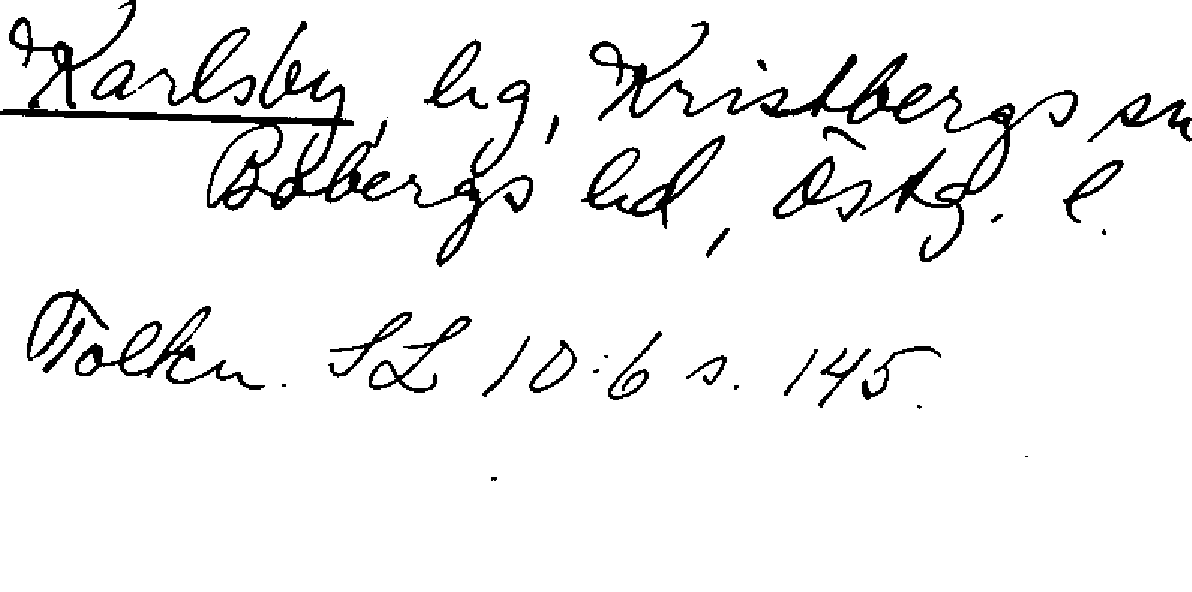 Karlsby, hg, Kristbergs sn
Bobergs hd, Östg. l.
Tolkn. SL 10:6 s. 145.